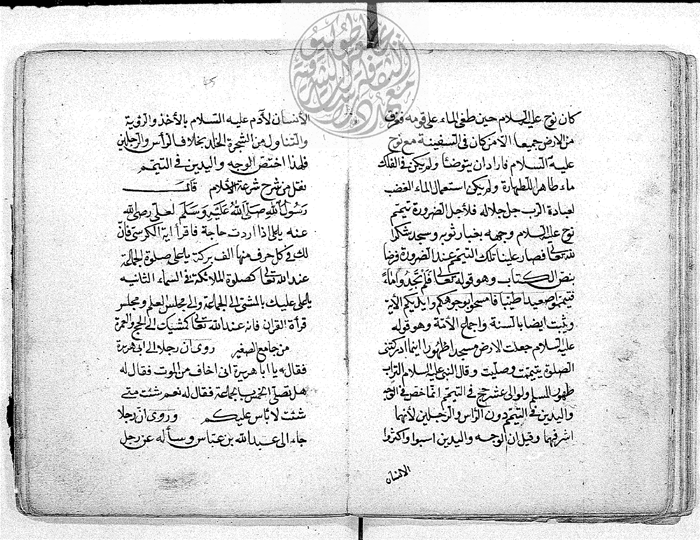 كان نوح عليه السلام حين طغى الماء على قومه فغرق
من الارض جميعا الامن كان في السفينة مع نوح
عليه السلام فاراد ان يتوضئا ولم يكن في الفلك
ماء طاهر للطهارة ولم يكن استعمال الماء الغضب
لعبادة الرب جل جلاله فلاجل الضرورة تيمم
نوح عليه السلام وجهه بغبار ثوبه وسجد شكرا
لله تعالى فصار علينا ذلك التيمم عند الضرورة فرضا
بنص الكتاب وهو قوله تعالى فلم تجدوا ماء
فتيمموا صعيدا طيبا فامسحوا بوجوهكم وايديكم الاية
وثبت ايضا بالسنة واجماع الامة وهو قوله
عليه السلام جعلت الارض مسجدا وطهورا اينما ادركتني
الصلوة تيممت وصليت وقال النبي عليه السلام التراب
طهور المسلم ولو الى عشر حجج في التيمم انما خص في الوجه
واليدين في التيمم دون الرأس والرجلين لأنهما
اشرفهما وقيل ان الوجه واليدين اسبوا واكثروا
الانسان
الأنسان لأدم عليه السلام بالأخذ والرؤية
والتناول من الشجرة الخلد بخلاف الرأس والرجلين
فلهذا اختص الوجه واليدين في التيمم
نقل من شرح شرعة الاسلام قال
رسول الله صلى الله عليه وسلم لعلى رضى الله
عنه يا على اذا اردت حاجة فاقرأ اية الكرسى فان
لك في كل حرف منها الف بركة يا على صلوة الجماعة
عند الله تعالى كصلوة الملائكة في السماء الثانيه
يا على عليك بالمشى الى الجماعة والى مجلس العلم ومجلس
قرأة القران فانه عند الله تعالى كمشيك الى الحج والعمرة
من جامع الصغير روى ان رجلا الى ابى هريرة
فقال يا ابا هريرة انى اخاف من الموت فقال له
هل تصلى الخمس بالجماعة فقال له نعم شئت متى
شئت لا بأس عليكم وروى ان رجلا
جاء الى عبد الله بن عباس وسأله عن رجل